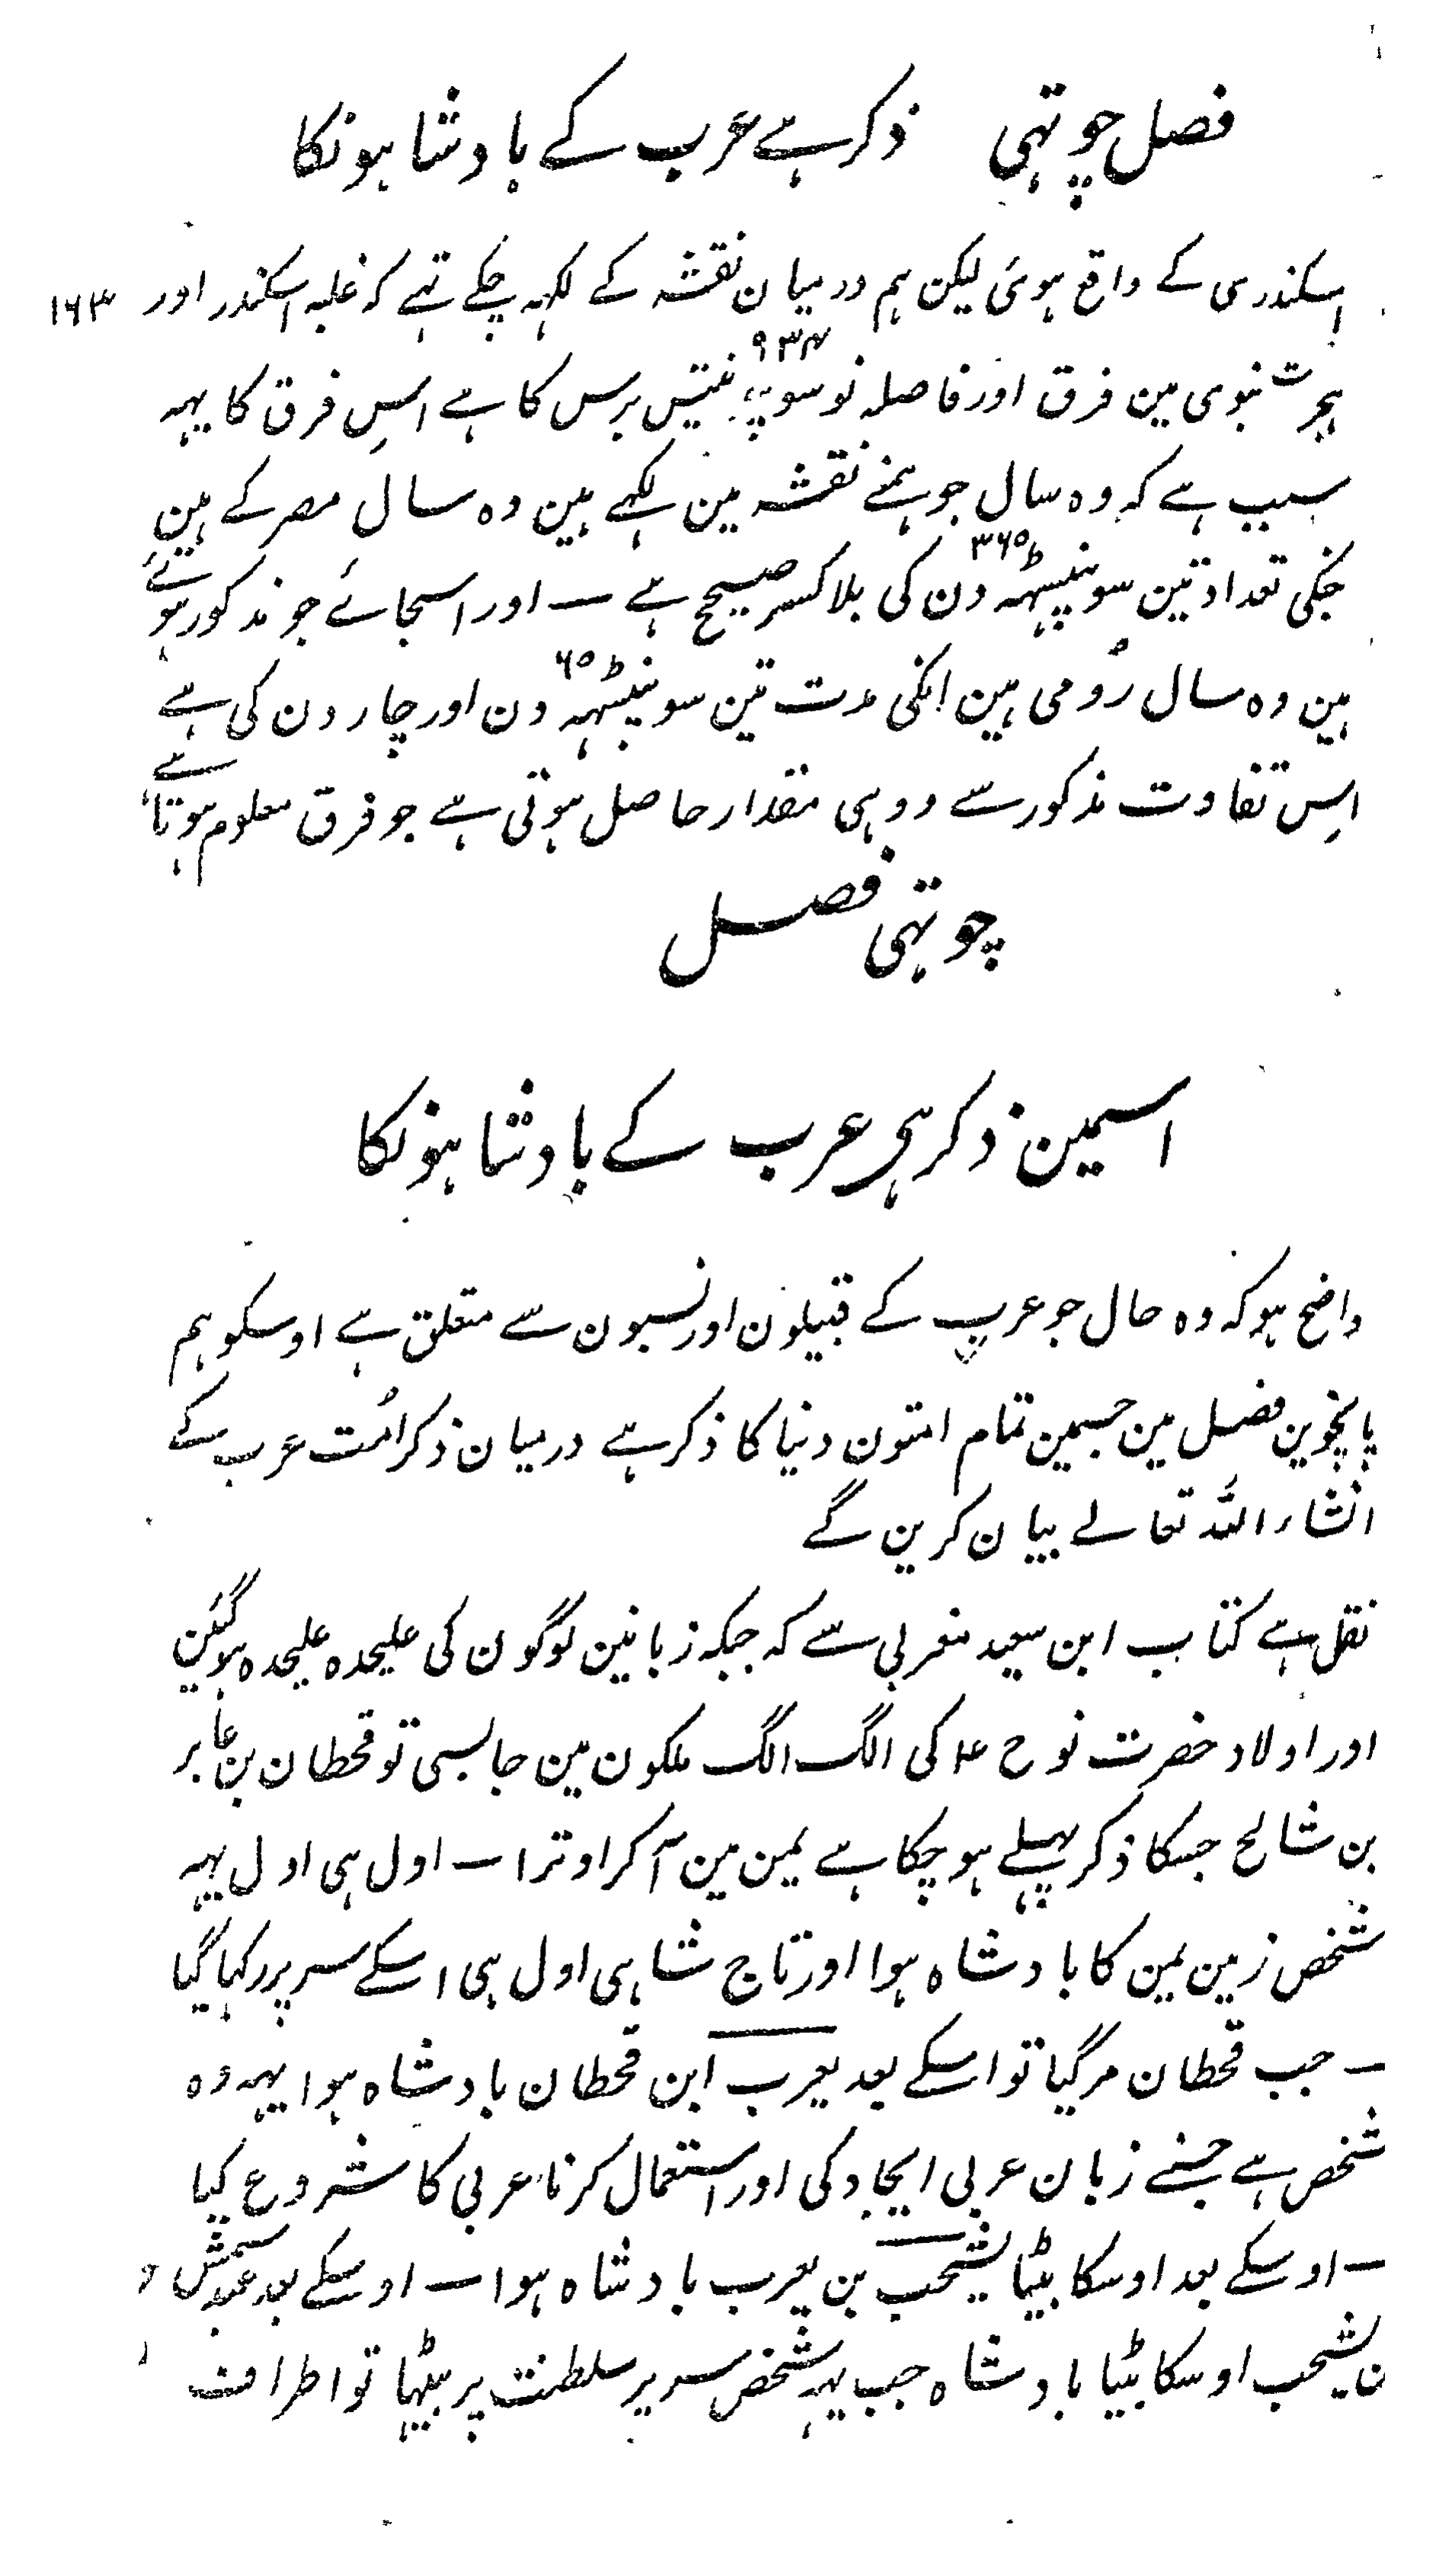 فصل چوتہی ذکر ہے عرب کے بادشاہونکا
اسکندری کے واقع ہوئی لیکن ہم درمیان نقشہ کے لکہہ چکے تہے کہ غلبہ اسکندر اور ۱۶۳
۹۳۴
ہجرت نبوی مین فرق اور فاصلہ نو سو برس کا ہے اس فرق کا یہہ
سبب ہے کہ وہ سال جو ہمنے نقشہ مین لکہے ہین وہ سال مصر کے ہین
۳۶۵
جنکی تعداد تین سو پنیسٹہہ دن کی بلا کسر صحیح ہے ــ اور اسجائے جو مذکور ہوئے
۶۵
ہین وہ سال رومی ہین انکی مدت تین سو پنیسٹہہ دن اور چار دن کی ہے
اس تفاوت مذکور سے ووہی مقدار حاصل ہوتی ہے جو فرق معلوم ہوتا ہے
چوتہی فصل
اسمین ذکر ہی عرب کے بادشاہونکا
واضح ہو کہ وہ حال جو عرب کے قبیلون اور نسبون سے متعلق ہے اوسکو ہم
پانچوین فصل مین جسمین تمام امتون دنیا کا ذکر ہے درمیان ذکر امت عرب کے
انشاء اللہ تعالے بیان کرین گے
نقل ہے کتاب ابن سعید مغربی سے کہ جبکہ زبانین لوگون کی علیحدہ علیحدہ ہوگئین
اور اولاد حضرت نوح ع کی الگ الگ ملکون مین جا بسی تو قحطان بن عابر
بن شالح جسکا ذکر پہلے ہو چکا ہے یمن مین آکر اوترا ــ اول ہی اول یہہ
شخص زمین یمن کا بادشاہ ہوا اور تاج شاہی اول ہی اسکے سر پر رکہا گیا
ــ جب قحطان مر گیا تو اسکے بعد یعرب ابن قحطان بادشاہ ہوا یہہ وہ
شخص ہے جسنے زبان عربی ایجاد کی اور استعمال کرنا عربی کا شروع کیا
ــ اوسکے بعد اوسکا بیٹا یشحب بن یعرب بادشاہ ہوا ــ اوسکے بعد عبد شمس
ن یشحب اوسکا بیٹا بادشاہ جب یہہ شخص سریر سلطنت پر بیٹہا تو اطراف